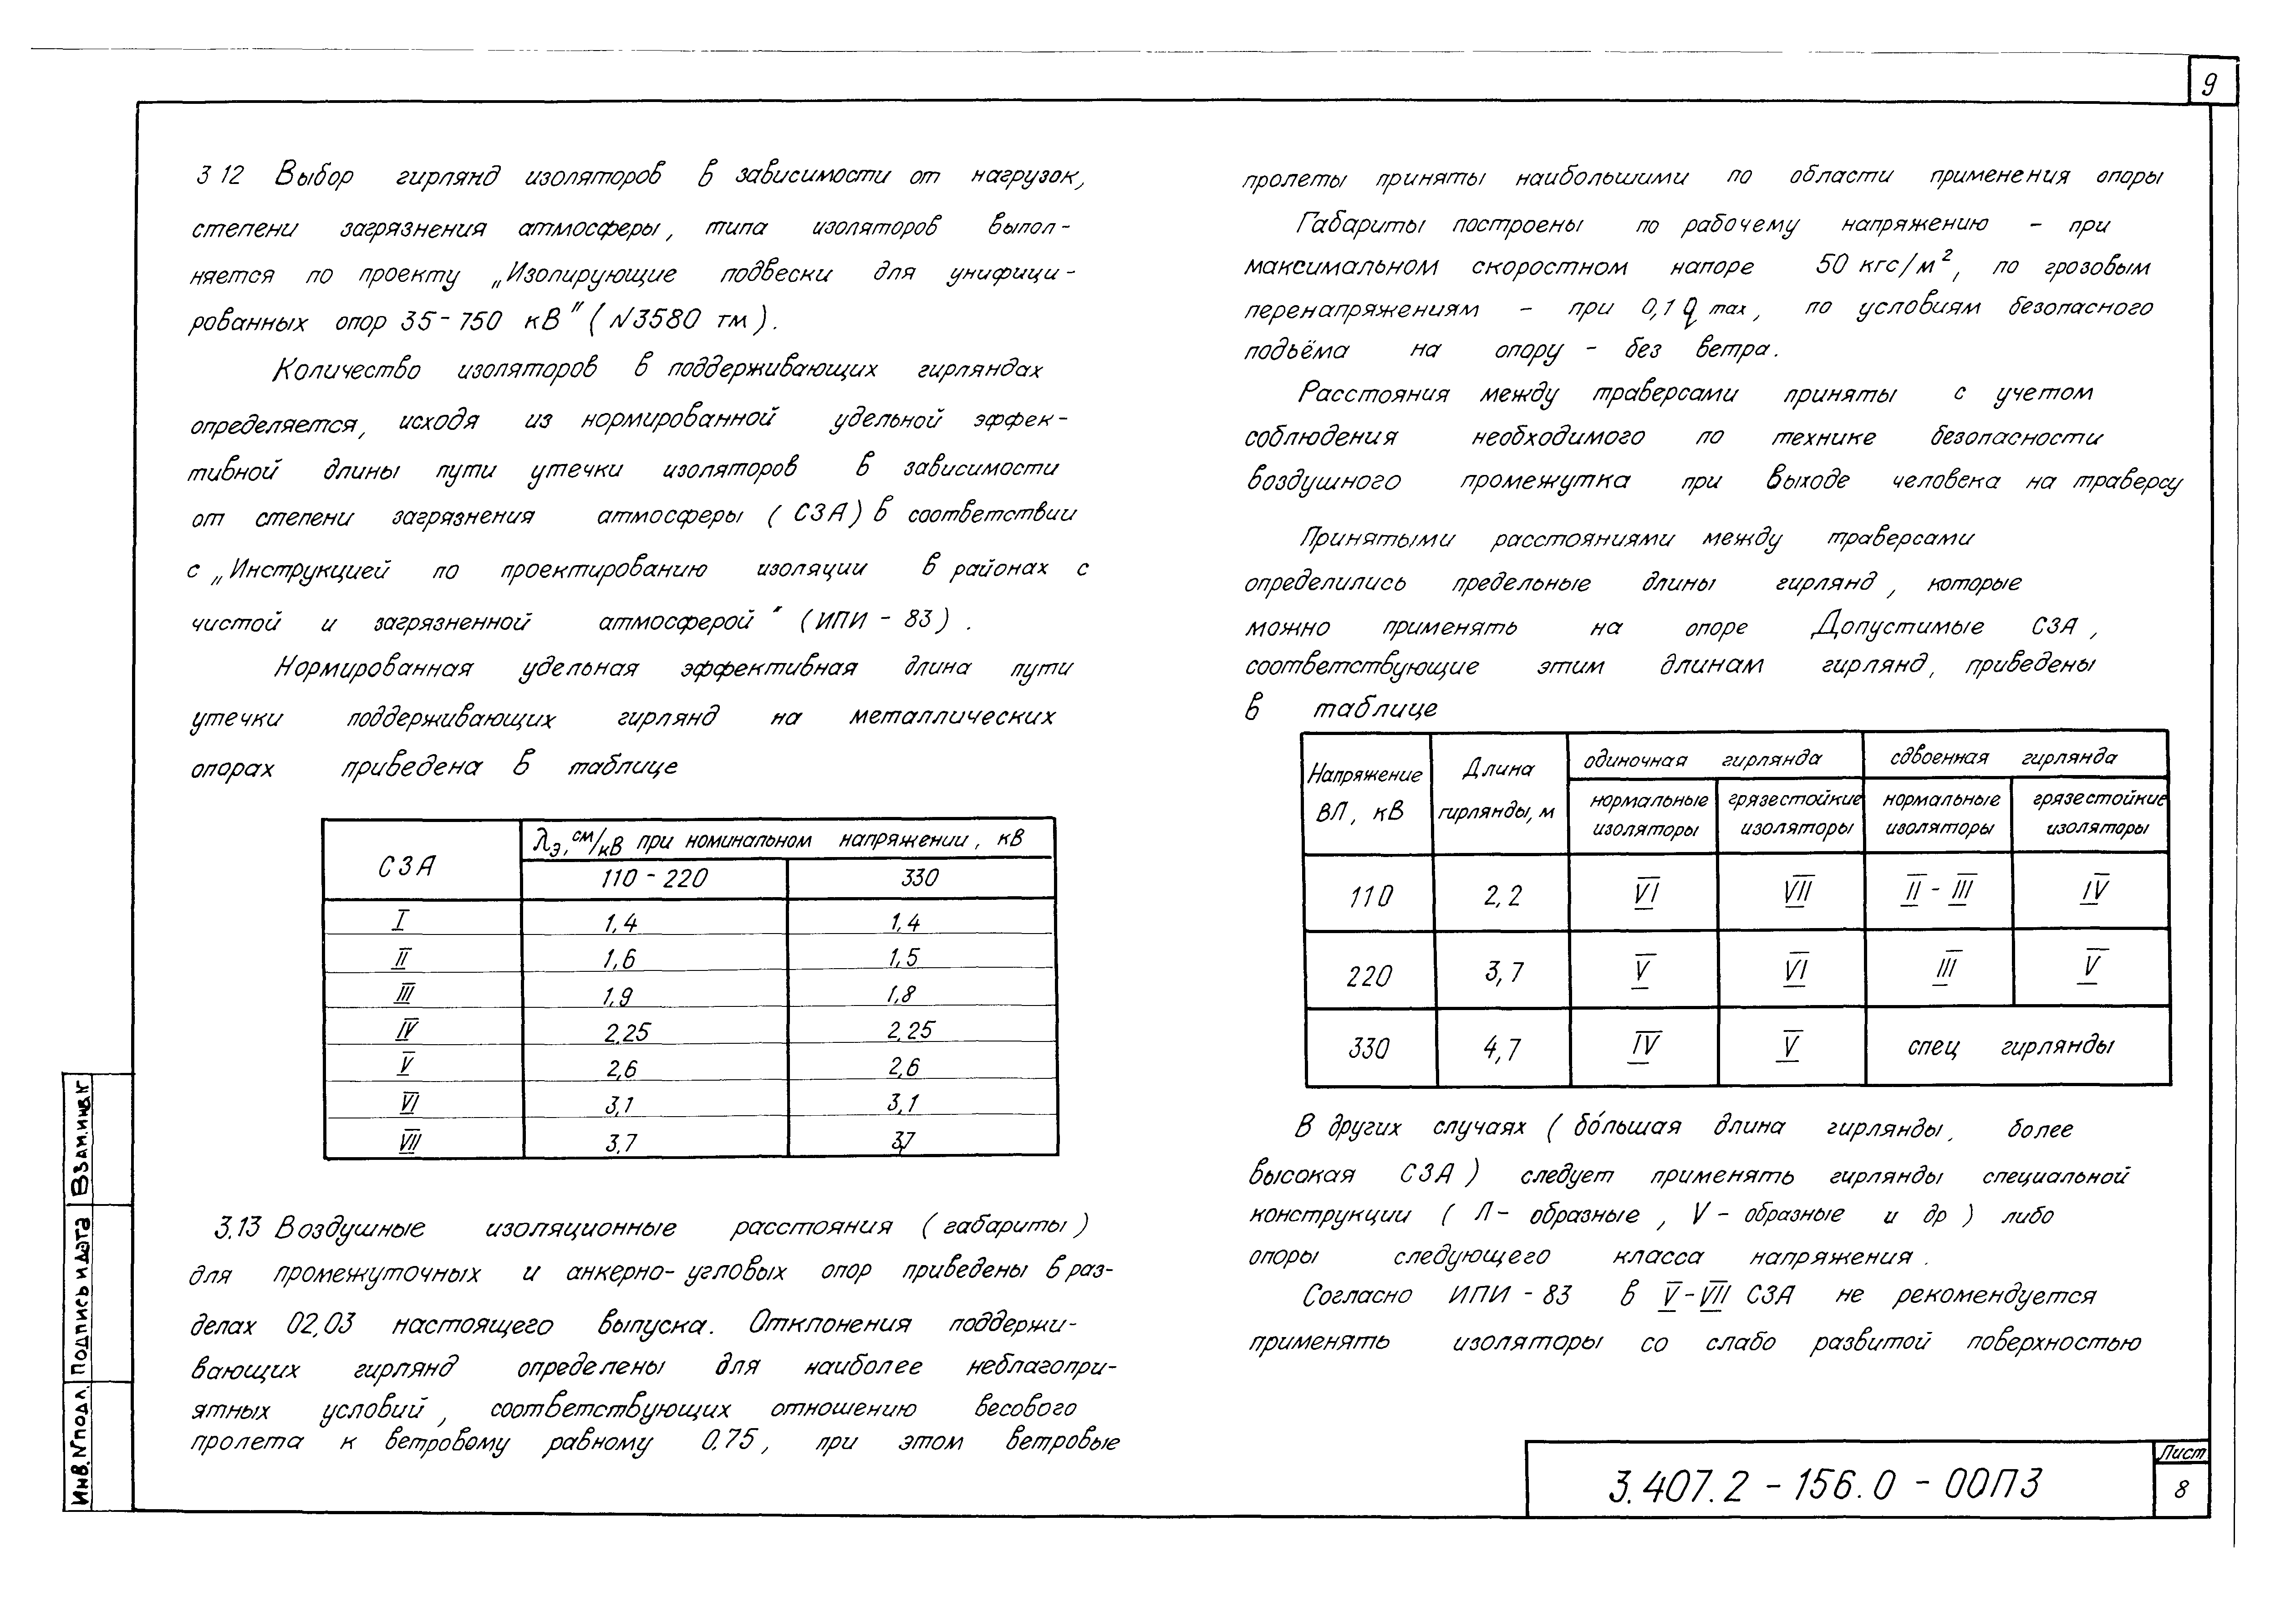 9
3 12 Выбор гирлянд изоляторов в зависимости от нагрузок,
степени загрязнения атмосферы, типа изоляторов выпол-
няется по проекту „Изолирующие подвески для унифици-
рованных опор 35-750 кВ" (N3580 тм).
Количество изоляторов в поддерживающих гирляндах
определяется, исходя из нормированной удельной эффек-
тивной длины пути утечки изоляторов в зависимости
от степени загрязнения атмосферы (СЗА) в соответствии
с „Инструкцией по проектированию изоляции в районах с
чистой и загрязненной атмосферой" (ИПИ-83).
Нормированная удельная эффективная длина пути
утечки поддерживающих гирлянд на металлических
опорах приведена в таблице
СЗА λэ, см/кВ при номинальном напряжении, кВ
110-220 330
I 1,4 1,4
II 1,6 1,5
III 1,9 1,8
IV 2,25 2,25
V 2,6 2,6
VI 3,1 3,1
VII 3,7 3,7
3.13 Воздушные изоляционные расстояния (габариты)
для промежуточных и анкерно-угловых опор приведены в раз-
делах 02,03 настоящего выпуска. Отклонения поддержи-
вающих гирлянд определены для наиболее неблагопри-
ятных условий, соответствующих отношению весового
пролета к ветровому равному 0.75, при этом ветровые
пролеты приняты наибольшими по области применения опоры
Габариты построены по рабочему напряжению - при
максимальном скоростном напоре 50 кгс/м², по грозовым
перенапряжениям - при 0,1 q max, по условиям безопасного
подъёма на опору - без ветра.
Расстояния между траверсами приняты с учетом
соблюдения необходимого по технике безопасности
воздушного промежутка при выходе человека на траверсу
Принятыми расстояниями между траверсами
определились предельные длины гирлянд, которые
можно применять на опоре Допустимые СЗА,
соответствующие этим длинам гирлянд, приведены
в таблице
Напряжение ВЛ, кВ Длина гирлянды, м одиночная гирлянда сдвоенная гирлянда
нормальные изоляторы грязестойкие изоляторы нормальные изоляторы грязестойкие изоляторы
110 2,2 VI VII II-III IV
220 3,7 V VI III V
330 4,7 IV V спец гирлянды
В других случаях (бо́льшая длина гирлянды, более
высокая СЗА) следует применять гирлянды специальной
конструкции (Л-образные, V-образные и др) либо
опоры следующего класса напряжения.
Согласно ИПИ-83 в V-VII СЗА не рекомендуется
применять изоляторы со слабо развитой поверхностью
3.407.2-156.0-00ПЗ
Лист
8
Инв. N подл. Подпись и дата Взам.инв.N